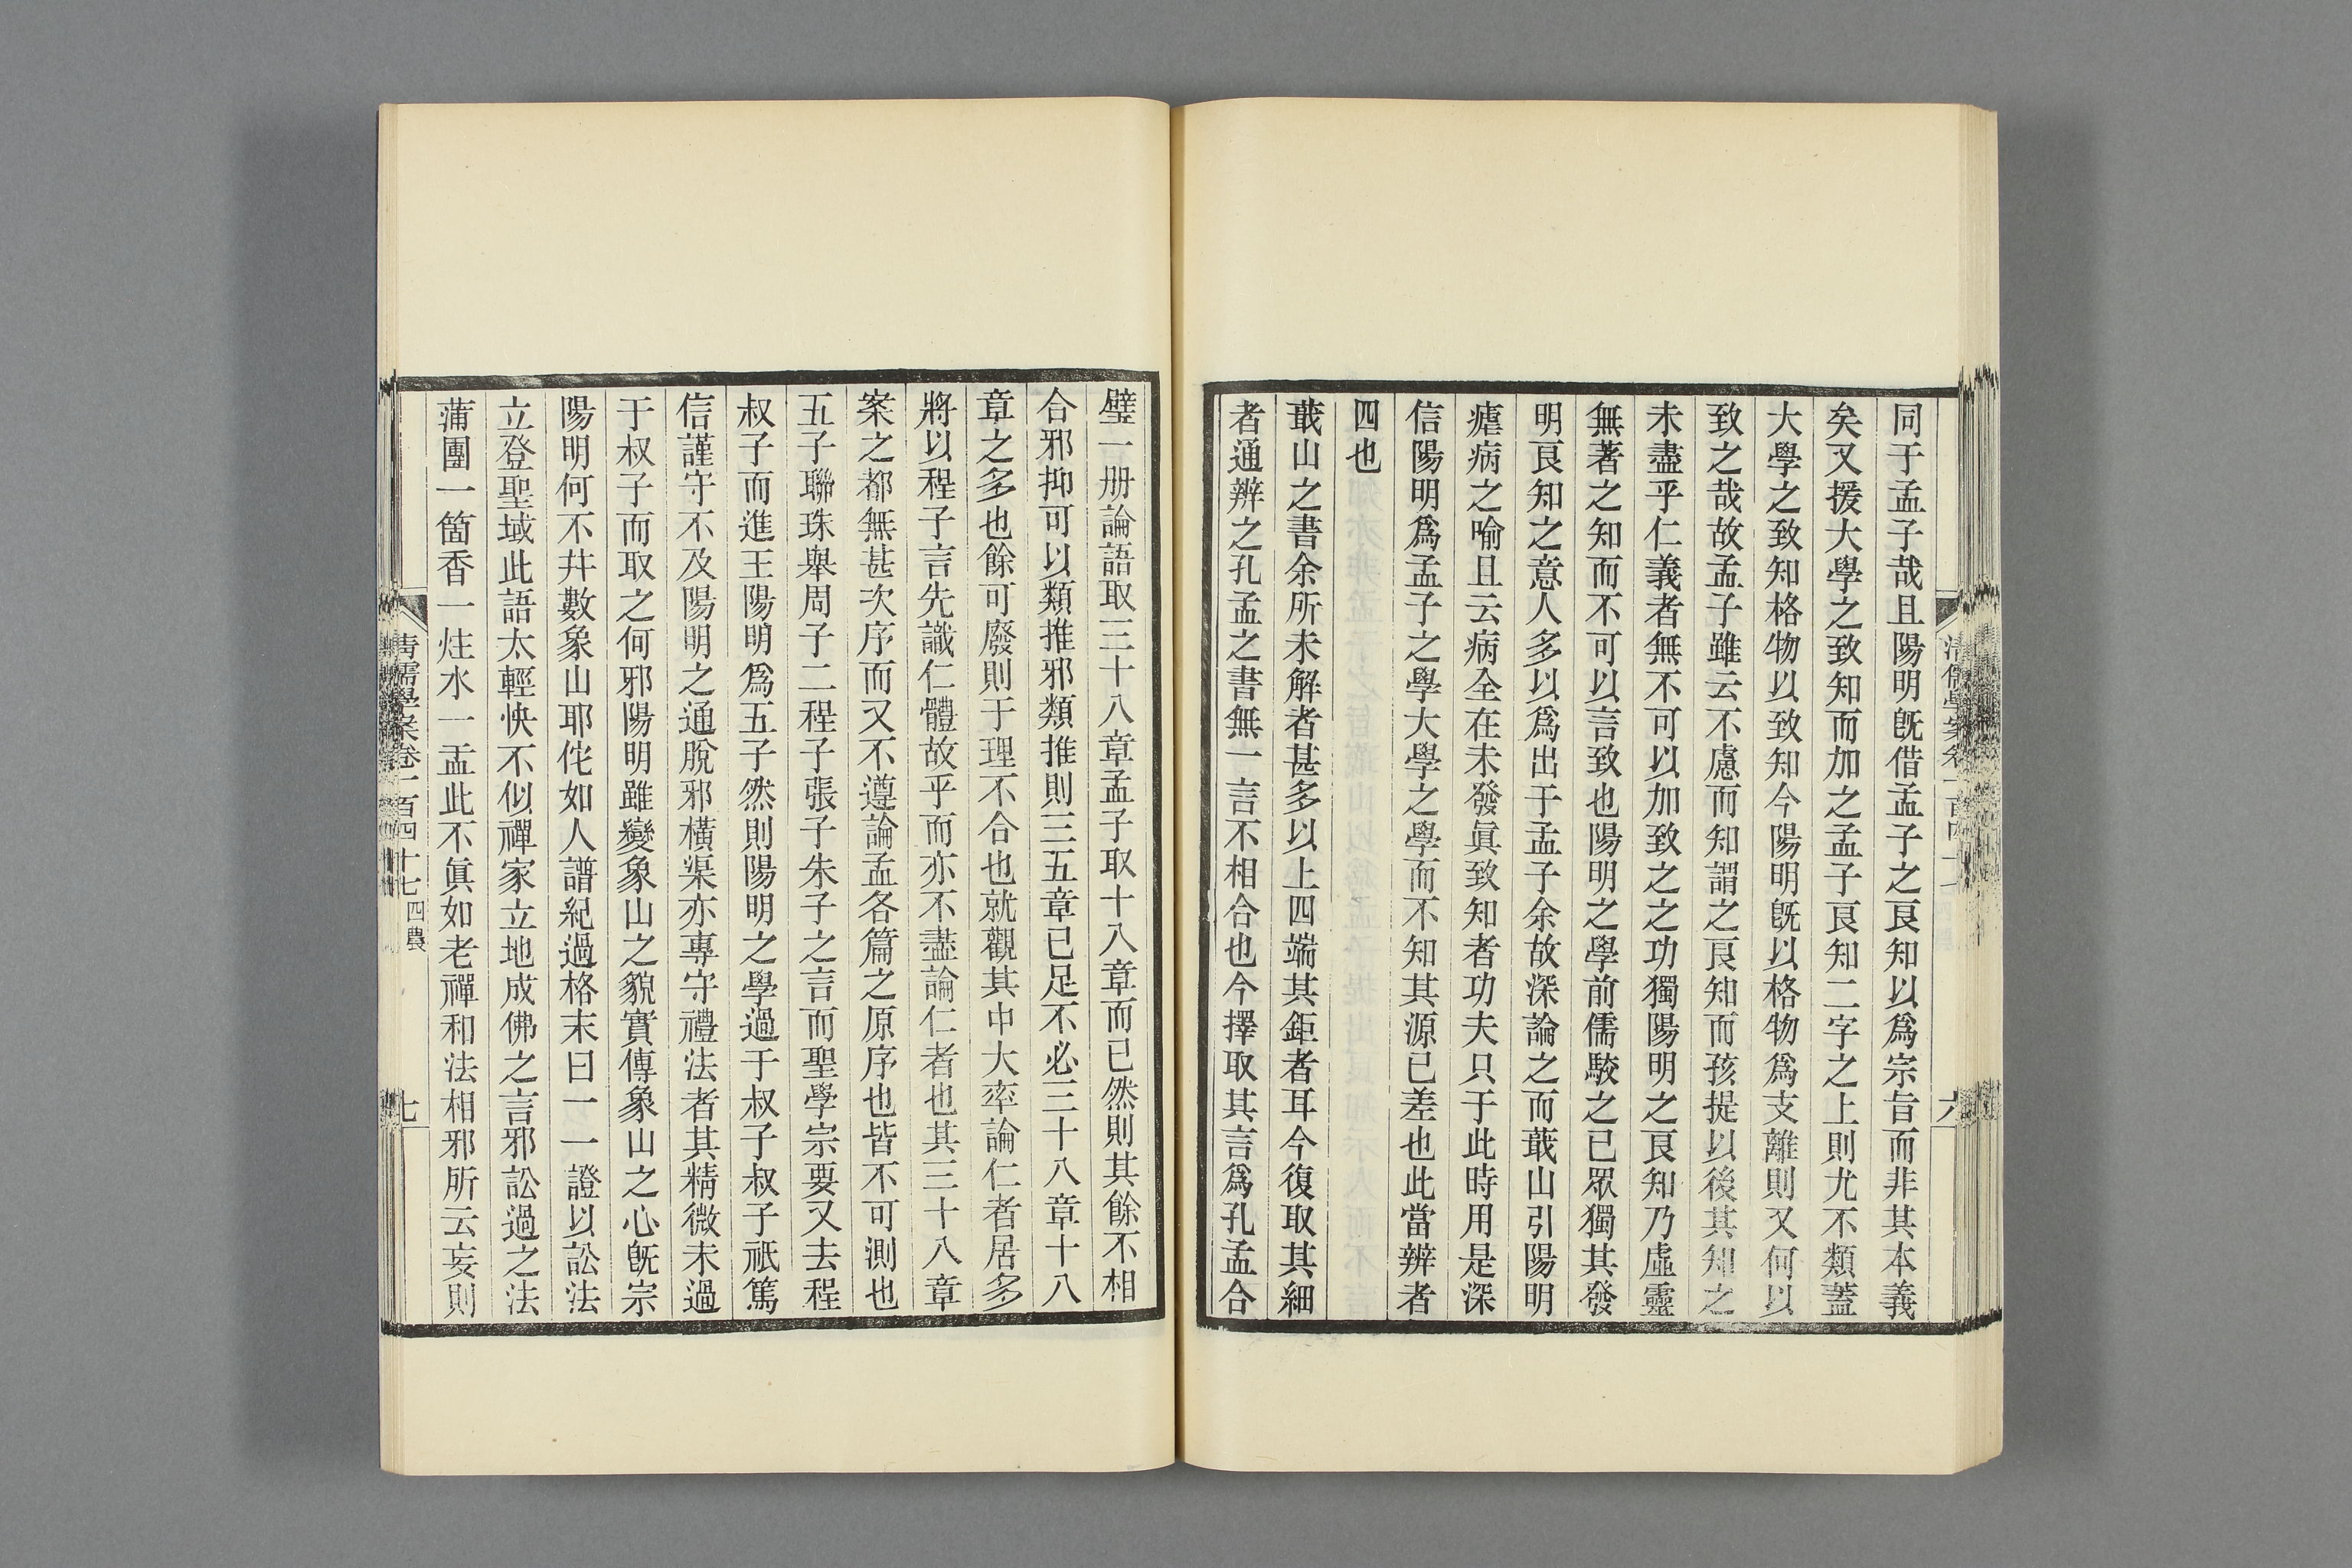 同于孟子哉且陽明旣借孟子之良知以爲宗旨而非其本義
矣又援大學之致知而加之孟子良知二字之上則尤不類蓋
大學之致知格物以致知今陽明旣以格物爲支離則又何以
致之哉故孟子雖云不慮而知謂之良知而孩提以後其知之
未盡乎仁義者無不可以加致之之功獨陽明之良知乃虛靈
無著之知而不可以言致也陽明之學前儒駮之已眾獨其發
明良知之意人多以爲出于孟子余故深論之而蕺山引陽明
瘧病之喻且云病全在未發眞致知者功夫只于此時用是深
信陽明爲孟子之學大學之學而不知其源已差也此當辨者
四也
蕺山之書余所未解者甚多以上四端其鉅者耳今復取其細
者通辨之孔孟之書無一言不相合也今擇取其言爲孔孟合
璧一册論語取三十八章孟子取十八章而已然則其餘不相
合邪抑可以類推邪類推則三五章已足不必三十八章十八
章之多也餘可廢則于理不合也就觀其中大率論仁者居多
將以程子言先識仁體故乎而亦不盡論仁者也其三十八章
案之都無甚次序而又不遵論孟各篇之原序也皆不可測也
五子聯珠舉周子二程子張子朱子之言而聖學宗要又去程
叔子而進王陽明爲五子然則陽明之學過于叔子叔子祇篤
信謹守不及陽明之通脫邪橫渠亦專守禮法者其精微未過
于叔子而取之何邪陽明雖變象山之貌實傳象山之心旣宗
陽明何不幷數象山耶侘如人譜紀過格末曰一一證以訟法
立登聖域此語太輕快不似禪家立地成佛之言邪訟過之法
蒲團一箇香一炷水一盂此不眞如老禪和法相邪所云妄則
清儒學案卷一百四十七 四農
七